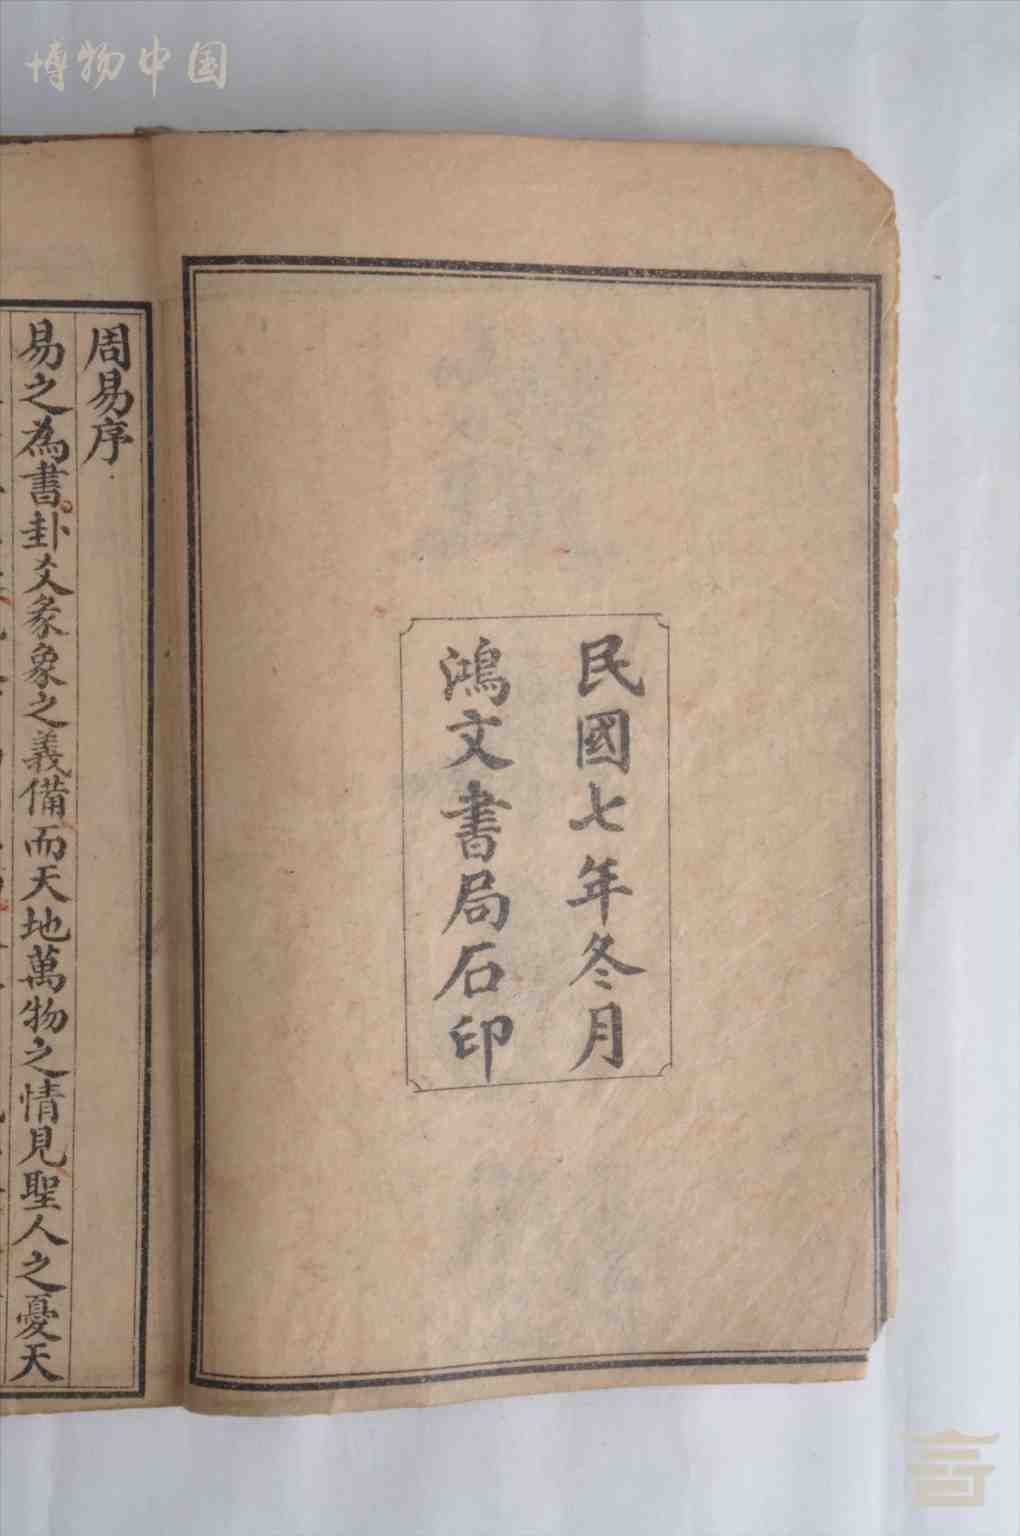 博物中国
民國七年冬月
鴻文書局石印
周易序
易之為書卦爻彖象之義備而天地萬物之情見聖人之憂天